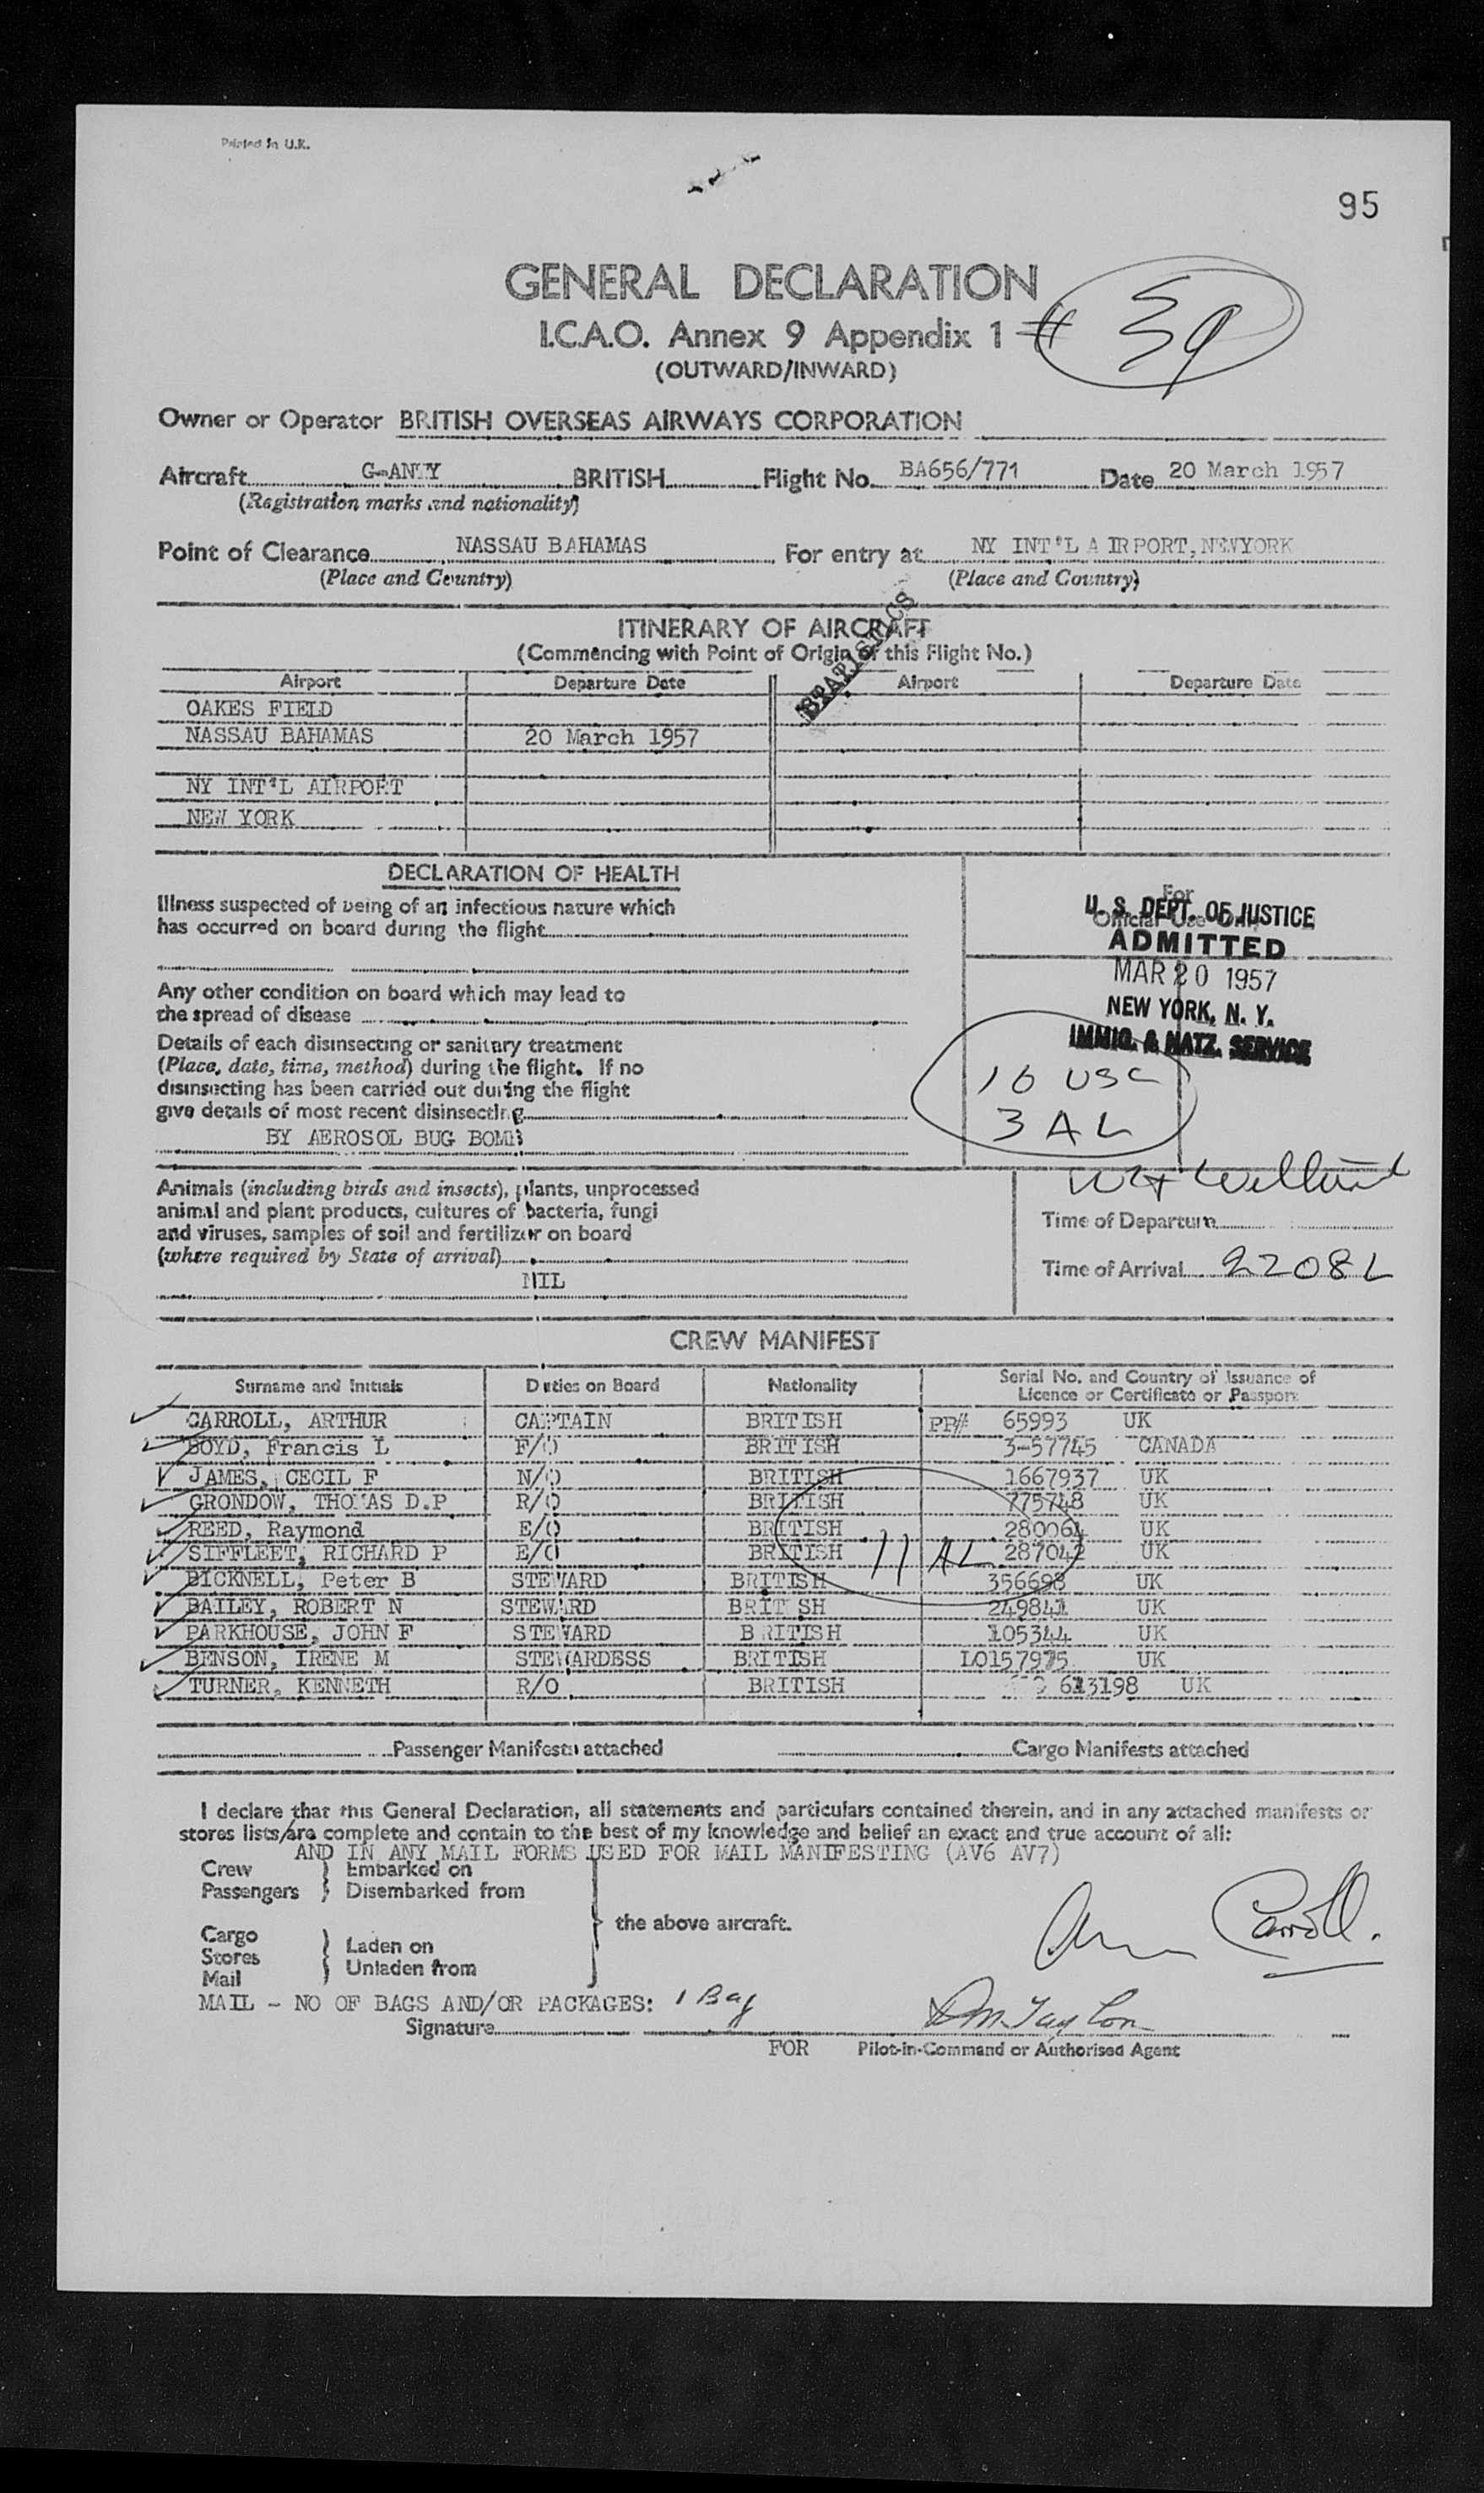 Printed in U.K.
95
GENERAL DECLARATION
I.C.A.O. Annex 9 Appendix 1 # 59
(OUTWARD/INWARD)
Owner or Operator BRITISH OVERSEAS AIRWAYS CORPORATION
Aircraft BRITISH Flight No. BA656/771 Date 20 March 1957
(Registration marks and nationality)
Point of Clearance NASSAU BAHAMAS For entry at NY INT'L AIRPORT, NEWYORK
(Place and Country) (Place and Country)
STATISTICS
ITINERARY OF AIRCRAFT
(Commencing with Point of Origin of this Flight No.)
Airport Departure Date Airport Departure Date
OAKES FIELD
NASSAU BAHAMAS 20 March 1957
NY INT'L AIRPORT
NEW YORK
DECLARATION OF HEALTH
Illness suspected of being of an infectious nature which
has occurred on board during the flight
Any other condition on board which may lead to
the spread of disease
Details of each disinsecting or sanitary treatment
(Place, date, time, method) during the flight. If no
disinsecting has been carried out during the flight
give details of most recent disinsecting
BY AEROSOL BUG BOMB
For
Official Use Only
U. S. DEPT. OF JUSTICE
ADMITTED
MAR 20 1957
NEW YORK, N. Y.
IMMIG. & NATZ. SERVICE
16 USC
3 AL
Animals (including birds and insects), plants, unprocessed
animal and plant products, cultures of bacteria, fungi
and viruses, samples of soil and fertilizer on board
(where required by State of arrival)
NIL
Time of Departure
Time of Arrival 2208 L
CREW MANIFEST
Surname and Initials Duties on Board Nationality Serial No. and Country of Issuance of
Licence or Certificate or Passport
CARROLL, ARTHUR CAPTAIN BRITISH PP# 65993 UK
BOYD, Francis L F/O BRITISH 3-57745 CANADA
JAMES, CECIL F N/O BRITISH 1667937 UK
GRONDOW, THOMAS D.P R/O BRITISH 775748 UK
REED, Raymond E/O BRITISH 280064 UK
SIFFLEET, RICHARD P E/O BRITISH 287042 UK
11 AL
BICKNELL, Peter B STEWARD BRITISH 356698 UK
BAILEY, ROBERT N STEWARD BRITISH 249841 UK
PARKHOUSE, JOHN F STEWARD BRITISH 105344 UK
BENSON, IRENE M STEWARDESS BRITISH LO157975 UK
TURNER, KENNETH R/O BRITISH 613198 UK
Passenger Manifests attached Cargo Manifests attached
I declare that this General Declaration, all statements and particulars contained therein, and in any attached manifests or
stores lists/are complete and contain to the best of my knowledge and belief an exact and true account of all:
AND IN ANY MAIL FORMS USED FOR MAIL MANIFESTING (AV6 AV7)
Crew Embarked on
Passengers Disembarked from
the above aircraft.
Cargo
Stores Laden on
Mail Unladen from
Carroll.
MAIL - NO OF BAGS AND/OR PACKAGES: 1 Bag
Signature DM Taylor
FOR Pilot-in-Command or Authorised Agent